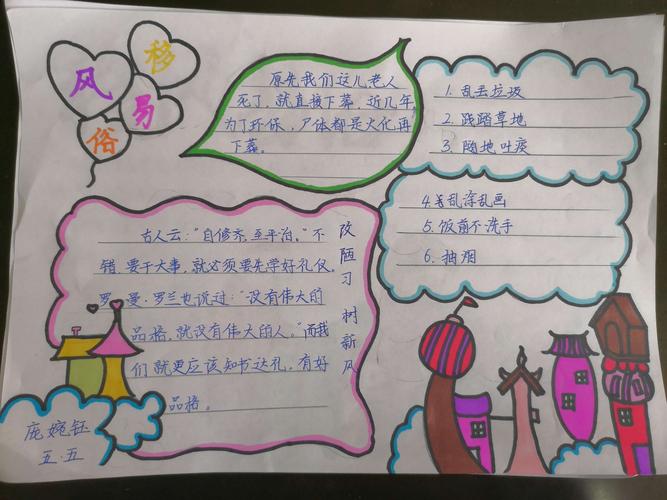 移风易俗
原先我们这儿老人
死了，就直接下葬，近几年
为了环保，尸体都是火化再
下葬。
1. 乱丢垃圾
2. 践踏草地
3. 随地吐痰
4. 乱涂乱画
5. 饭前不洗手
6. 抽烟
古人云："自修齐，至平治。"不
错，要干大事，就必须要先学好礼仪。
罗曼·罗兰也说过："没有伟大的
品格，就没有伟大的人。"而我
们就更应该知书达礼，有好
品格。
改陋习 树新风
庞婉钰
五.五